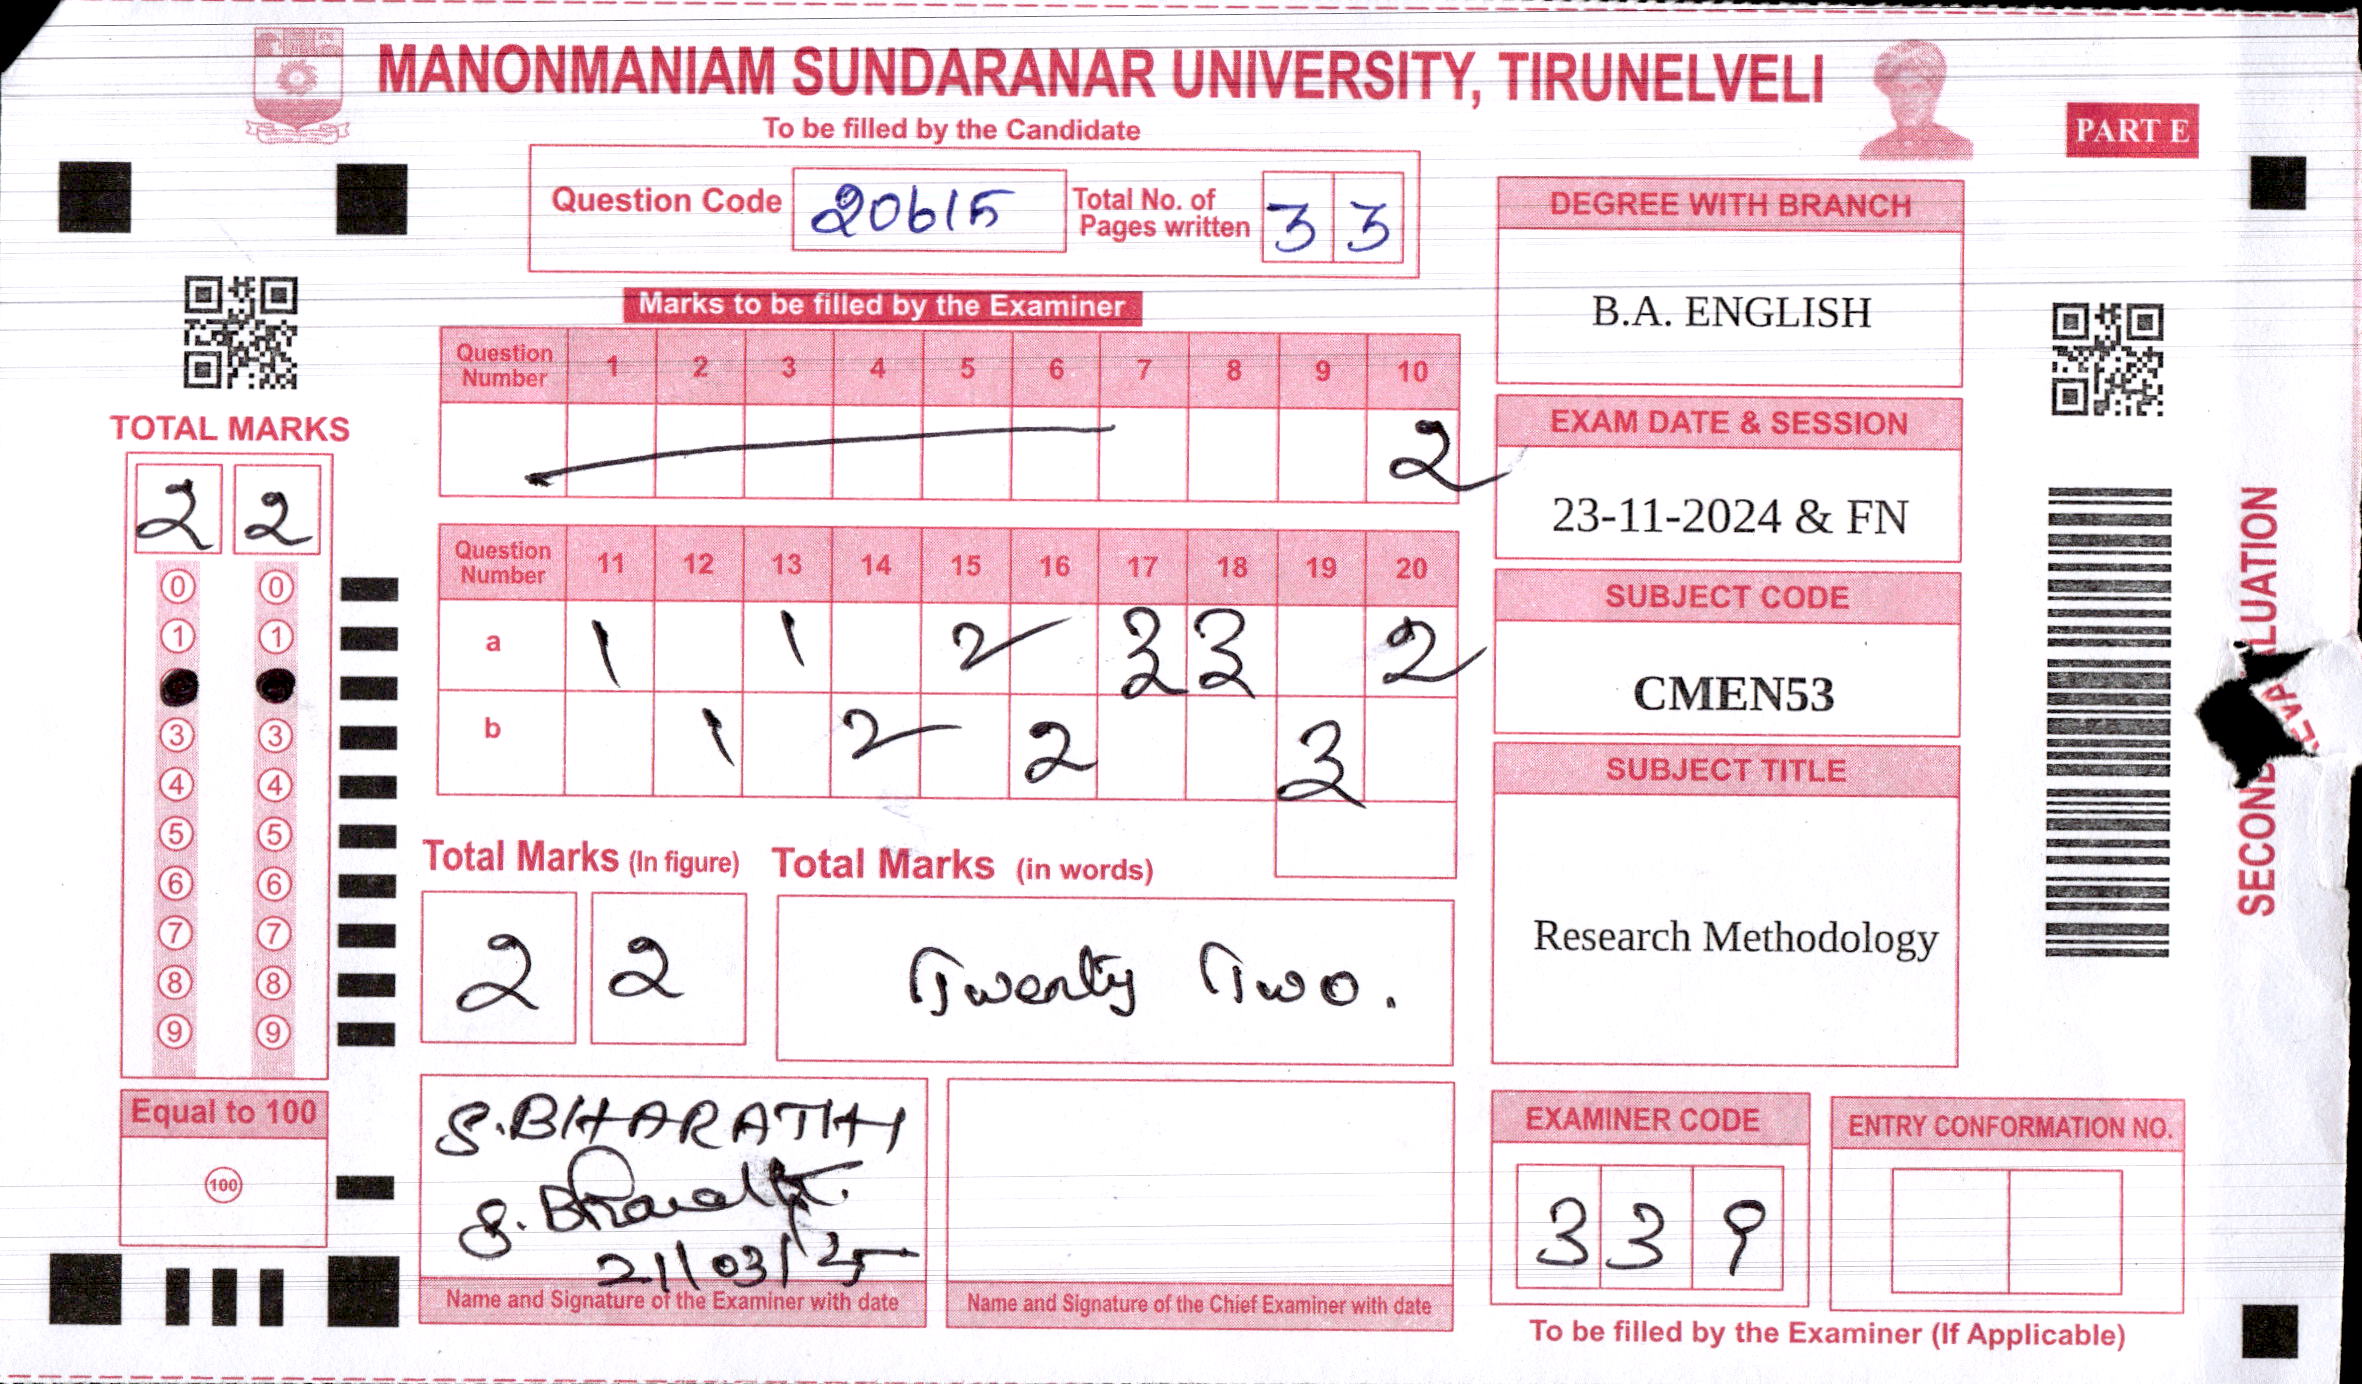 MANONMANIAM SUNDARANAR UNIVERSITY, TIRUNELVELI
To be filled by the Candidate
PART E
Question Code 20615 Total No. of Pages written 3 3
Marks to be filled by the Examiner
Question Number 1 2 3 4 5 6 7 8 9 10
2
Question Number 11 12 13 14 15 16 17 18 19 20
a 1 1 2 3 3 2
b 1 2 2 3
TOTAL MARKS
2 2
0 0
1 1
3 3
4 4
5 5
6 6
7 7
8 8
9 9
Equal to 100
100
Total Marks (In figure) Total Marks (in words)
2 2 Twenty Two.
S.BHARATHI
S. Bharathi.
21/03/25
Name and Signature of the Examiner with date
Name and Signature of the Chief Examiner with date
DEGREE WITH BRANCH
B.A. ENGLISH
EXAM DATE & SESSION
23-11-2024 & FN
SUBJECT CODE
CMEN53
SUBJECT TITLE
Research Methodology
EXAMINER CODE
3 3 9
ENTRY CONFORMATION NO.
To be filled by the Examiner (If Applicable)
SECOND